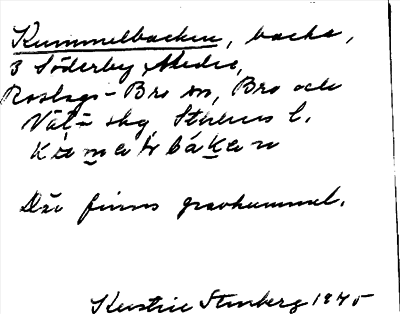 Kummelbacken, backe,
3 Söderby, Medie,
Roslags-Bro sn, Bro och
Vätö skg, Sthlms l.
Där finns gravkummel.
Kerstin Stenberg 1945